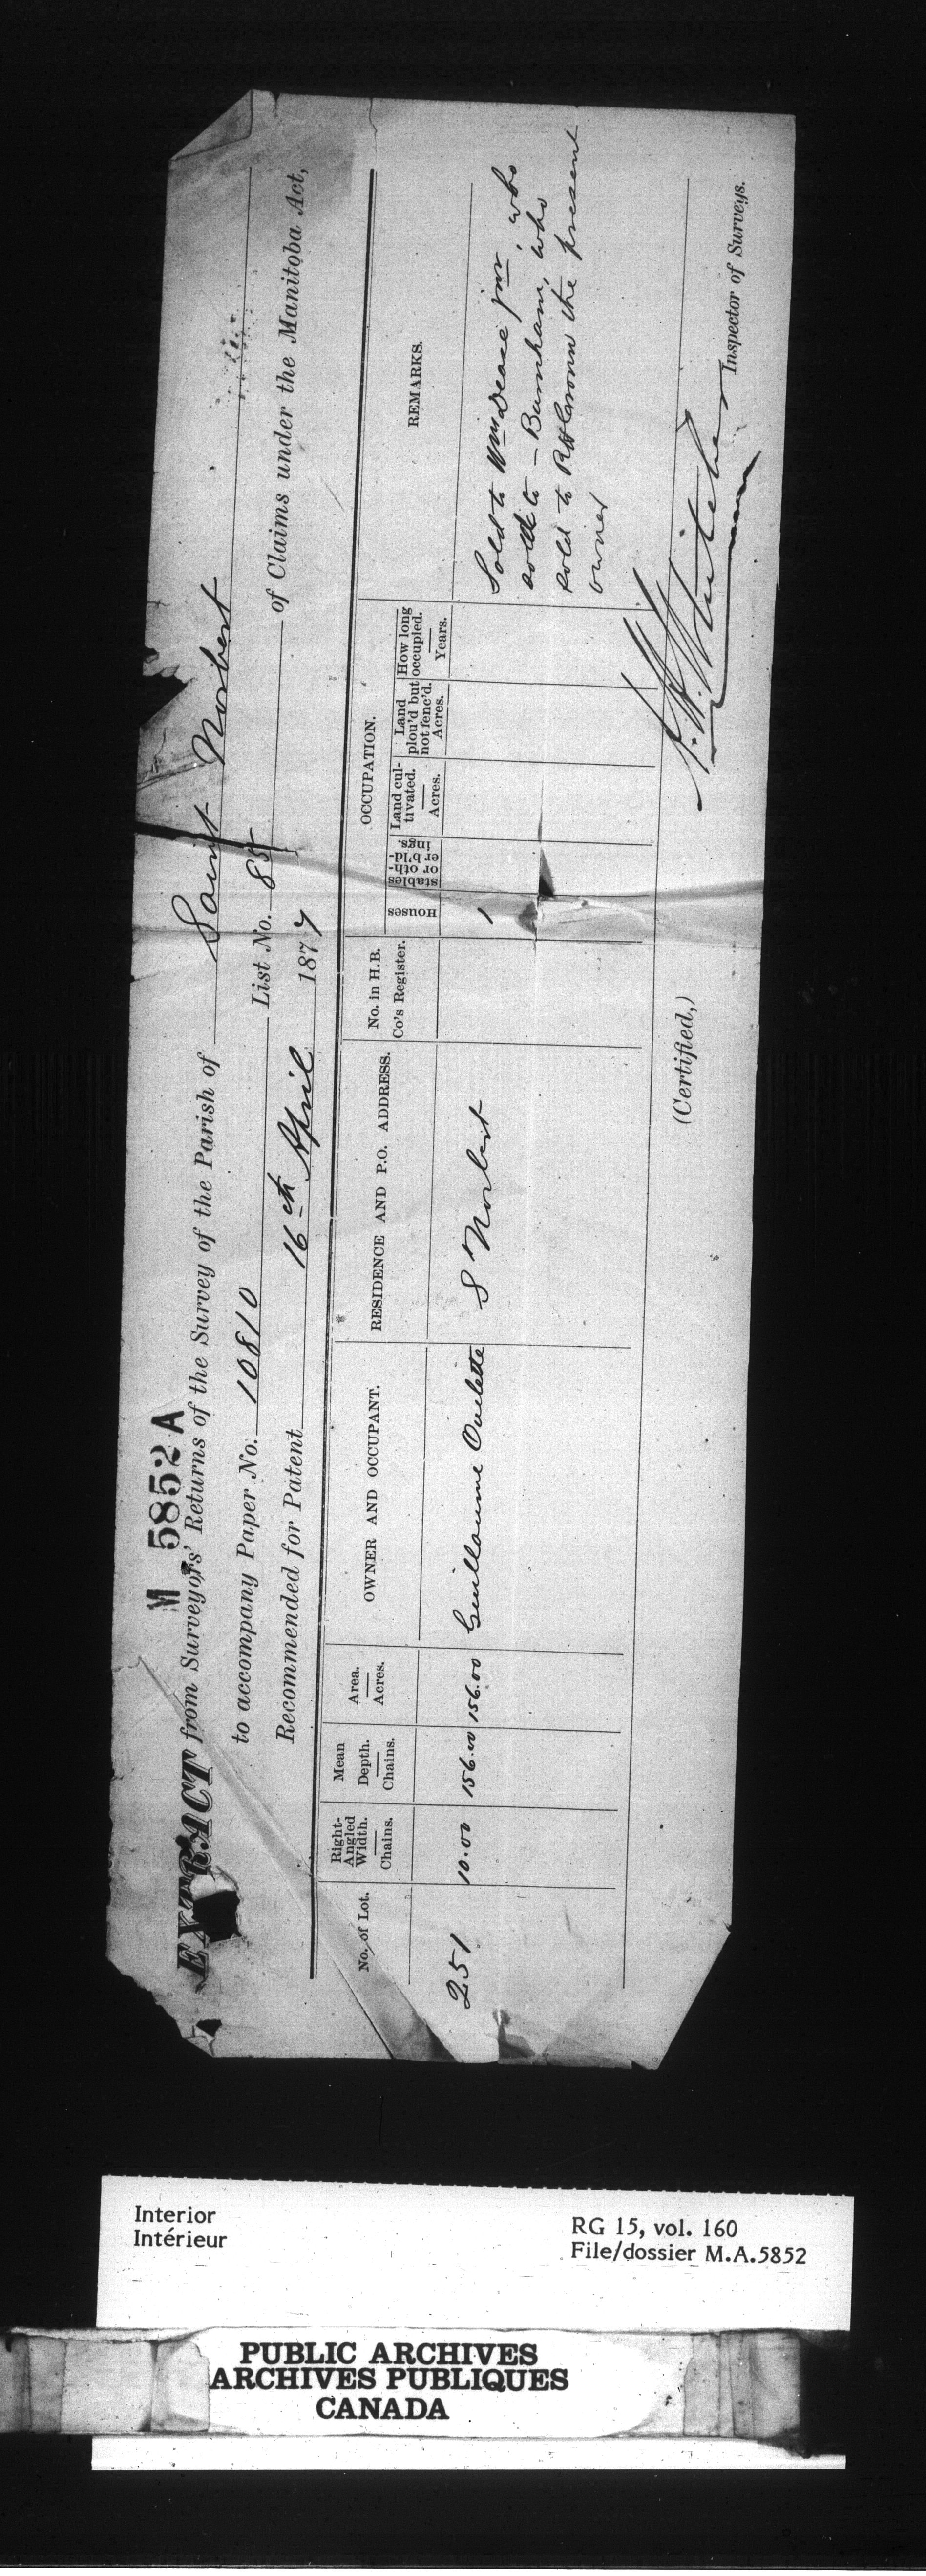 M 5852 A
EXTRACT from Surveyors' Returns of the Survey of the Parish of Saint Norbert
to accompany Paper No. 10810 List No. 85 of Claims under the Manitoba Act,
Recommended for Patent 16th April 1877
No. of Lot.
Right-Angled Width. Chains.
Mean Depth. Chains.
Area. Acres.
OWNER AND OCCUPANT.
RESIDENCE AND P.O. ADDRESS.
No. in H.B. Co's Register.
OCCUPATION.
Houses
stables or oth-er b'ld-ings.
Land cul-tivated. Acres.
Land plou'd but not fenc'd. Acres.
How long occupied. Years.
REMARKS.
251 10.00 156.00 156.00 Guillaume Ouelette S Norbert 1
Sold to Wm Dease jnr, who
sold to — Burnham, who
sold to the present
owner
(Certified,)
Inspector of Surveys.
Interior
Intérieur
RG 15, vol. 160
File/dossier M.A.5852
PUBLIC ARCHIVES
ARCHIVES PUBLIQUES
CANADA